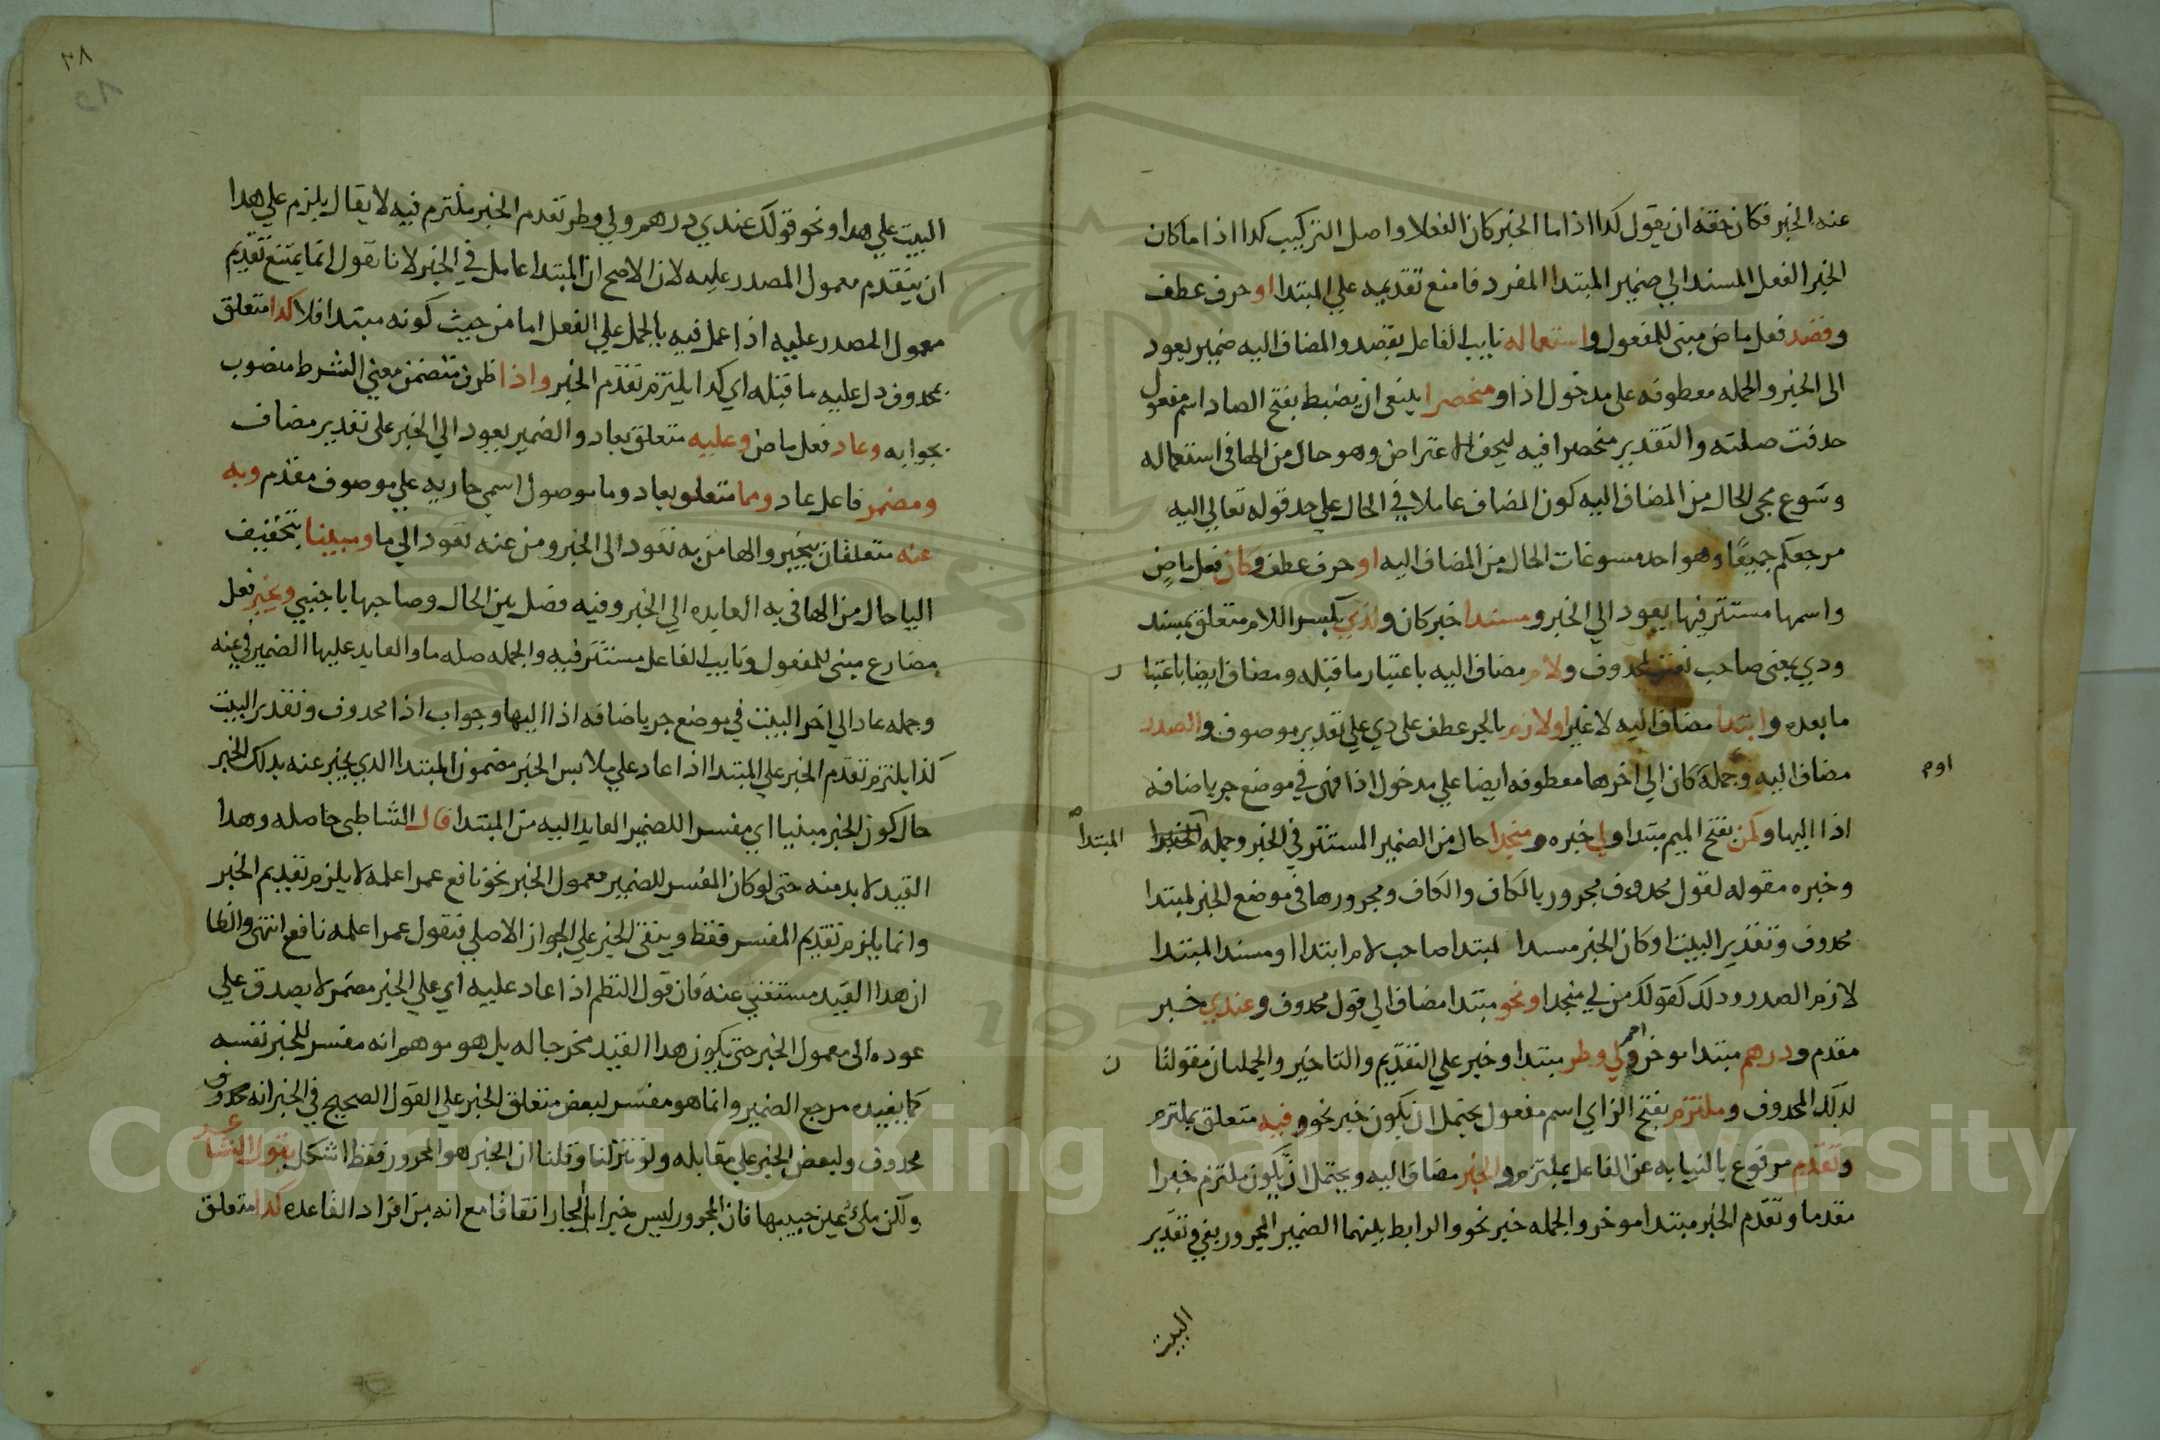 عنه الخبر فكان حقه ان يقول كذا اذا ما الخبر كان الفعلا واصل التركيب كذا اذا ما كان
الخبر الفعل المسند الي ضمير المبتدا المفرد فامنع تقديمه علي المبتدا او حرف عطف
وقصد فعل ماض مبنى للمفعول واستعماله نايب الفاعل بقصد والمضاف اليه ضمير يعود
الى الخبر والجمله معطوفه على مدخول اذا ومنحصرا ينبغى ان يضبط بفتح الصاد اسم مفعول
حذفت صلته والتقدير منحصرا فيه ليخف الاعتراض وهو حال من الها فى استعماله
وسوع مجى الحال من المضاف اليه كون المضاف عاملا في الحال علي حد قوله تعالي اليه
مرجعكم جميعًا وهو احد مسوغات الحال من المضاف اليه او حرف عطف وكان فعل ماضٍ
واسمها مستتر فيها يعود الي الخبر ومسندا خبر كان ولذي بكسر اللام متعلق بمسند
وذي بمعنى صاحب نعت لمحذوف ولام مضاف اليه باعتبار ما قبله ومضاف ايضا باعتبا ر
ما بعده وابتدا مضاف اليه لا غير اولازم بالجر عطف على ذي علي تقدير موصوف والصدر
مضاف اليه وجملة كان الي اخرها معطوفه ايضا علي مدخول اذا فهى في موضع جر باضافه
اوم
اذا اليها وكمن بفتح الميم مبتدا ولي خبره ومنجدا حال من الضمير المستتر في الخبر وجمله المبتدا
وخبره مقوله لقول محذوف مجرور بالكاف والكاف ومجرورها فى موضع الخبر لمبتدا
محذوف وتقدير البيت او كان الخبر مسندا لمبتدا صاحب لام ابتدا او مسندا لمبتدا
لازم الصدر وذلك كقولك من لي منجدا ونحو مبتدا مضاف الي قول محذوف وعندي خبر
مقدم ودرهم مبتدا موخر ولي وطر مبتدا وخبر علي التقديم والتاخير والجملتان مقولتا ن
لذلك المحذوف وملتزم بفتح الزاي اسم مفعول يحتمل ان يكون خبر نحو وفيه متعلق بملتزم
وتقدم مرفوع بالنيابه عن الفاعل بملتزم والخبر مضاف اليه ويحتمل ان يكون ملتزم خبرا
مقدما وتقدم الخبر مبتدا موخر والجمله خبر نحو والرابط بينهما الضمير المجرور بفي وتقدير
البيت
٣٨
البيت علي هذا ونحو قولك عندي درهم ولي وطر تقدم الخبر ملتزم فيه لا يقال يلزم علي هذا
ان يتقدم معمول المصدر عليه لان الاصح ان المبتدا عامل في الخبر لانا نقول انما يمتنع تقديم
معمول المصدر عليه اذا عمل فيه بالحمل علي الفعل اما من حيث كونه مبتدا فلا كذا متعلق
بمحذوف دل عليه ما قبله اي كذا يلتزم تقدم الخبر واذا ظرف متضمن معني الشرط منصوب
بجوابه وعاد فعل ماض وعليه متعلق بعاد والضمير يعود الي الخبر على تقدير مضاف
ومضمر فاعل عاد ومما متعلق بعاد وما موصول اسمي جاريه علي موصوف مقدم وبه
عنه متعلقان بيخبر والها من به تعود الى الخبر ومن عنه تعود الي ما ومبينا بتخفيف
اليا حال من الها فى به العايده الي الخبر وفيه فصل بين الحال وصاحبها باجنبي ويخبر فعل
مضارع مبنى للمفعول ونايب الفاعل مستتر فيه والجمله صله ما والعايد عليها الضمير في عنه
وجمله عاد الي اخر البيت في موضع جر باضافه اذا اليها وجواب اذا محذوف وتقدير البيت
كذا يلتزم تقدم الخبر علي المبتدا اذا عاد علي ملابس الخبر مضمر من المبتدا الذي يخبر عنه بذلك الخبر
حال كون الخبر مبنيا اي مفسرا للضمير العايد اليه من المبتدا قال الشاطبى حاصله وهذا
القيد لا بد منه حتى لو كان المفسر للضمير معمول الخبر نحو نافع عمرا علمه لا يلزم تقديم الخبر
وانما يلزم تقديم المفسر فقط ويبقى الخبر علي الجواز الاصلي فتقول عمرا علمه نافع انتهى والظا
ان هذا القيد مستغني عنه فان قول النظم اذا عاد عليه اي علي الخبر مضمر لا يصدق علي
عوده الى معمول الخبر حتى يكون هذا القيد مخرجا له بل هو موهم انه مفسر للخبر نفسه
كما يفيده مرجع الضمير وانما هو مفسر لبعض متعلق الخبر علي القول الصحيح في الخبر انه محذوف
محذوف ولبعض الخبر علي مقابله ولو تنزلنا وقلنا ان الخبر هو المجرور فقط اشكل بقول الشاعر
ولكن ملئ عين حبيبها فان المجرور ليس خبرا بل الجار اتفاقا مع انه من افراد القاعده كذا متعلق
Copyright © King Saud University